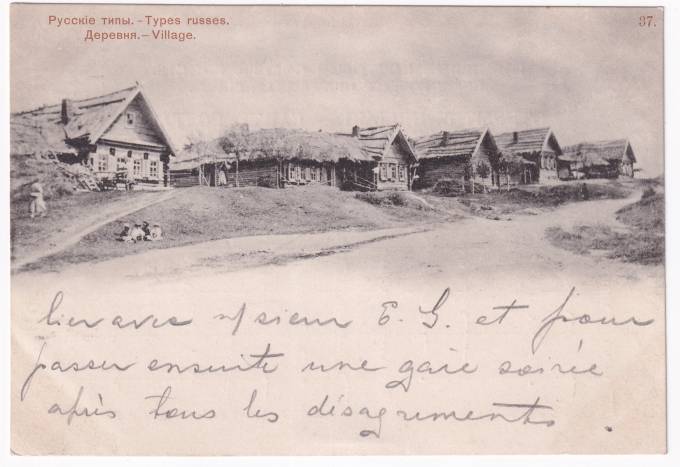 Русскіе типы. - Types russes.
37.
Деревня. - Village.
lier avec m/sieur E. G. et pour
passer ensuite une gaie soirée
après tous les désagréments.